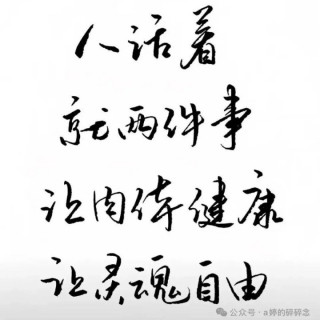 人活着
就两件事
让肉体健康
让灵魂自由
公众号·a婷的碎碎念